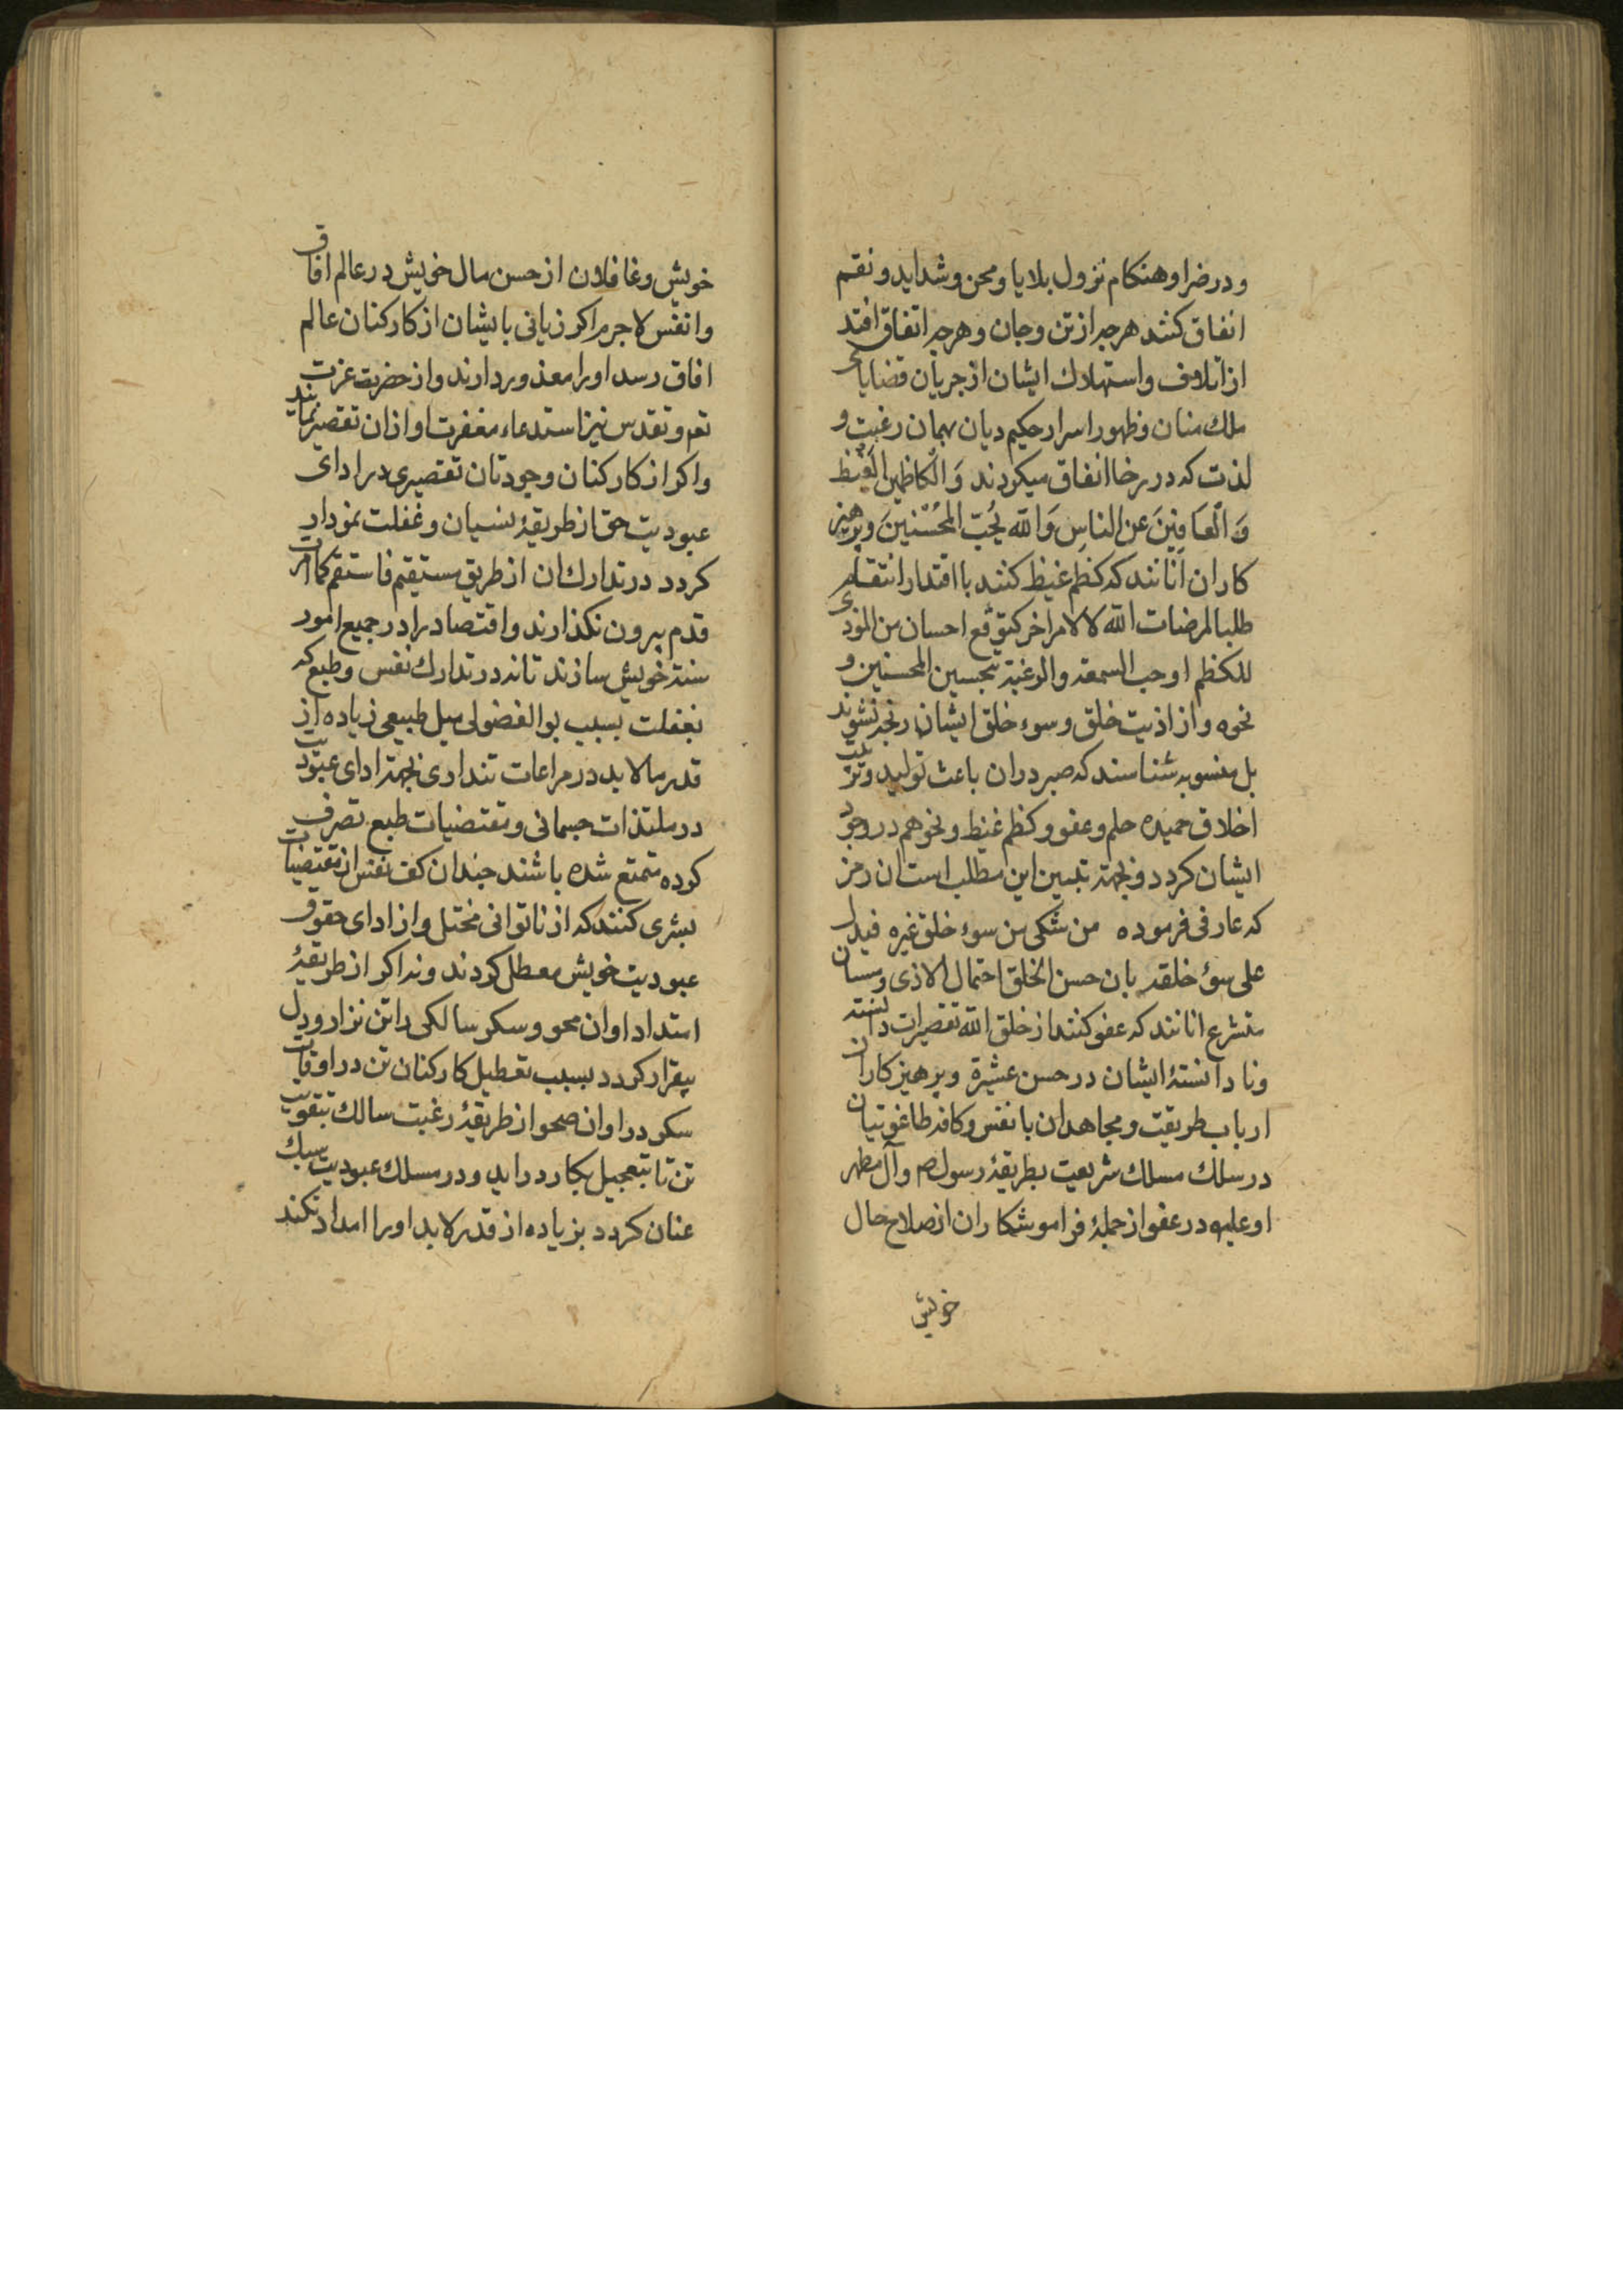 ودر ضرا وهنكام نزول بلايا ومحن وشدايد ونقم
انفاق كنند هرچه از تن وجان وهرچه اتفاق افتد
از اتلاف واستهلاك ايشان از جريان قضاياى
ملك منان وظهور اسرار حكيم ديان بهمان رغبت و
لذت كه در رخا انفاق ميكردند وَالْكاظمينَ الْغَيْظَ
وَالْعَافِينَ عن الناسِ وَاللّه يُحِبّ المُحْسِنينَ وپرهيز
كاران آنانند كه كظم غيظ كنند با اقتدار انتقام
طلبا لمرضات اللّه لا لامر اخر كتوقع احسان من الموذى
للكظم او حب السمعه والرغبة بتحسين المحسنين و
نحوه واز اذيت خلق وسوء خلق ايشان رنجه نشوند
بل مثوبه شناسند كه صبر دران باعث توليد وتربيت
اخلاق حميده حلم وعفو وكظم غيظ ونحوهم در وجود
ايشان كردد وبجهة تبيين اين مطلب است ان رمز
كه عارفى فرموده من شكى من سوء خلق غيره فيدل
على سوء خلقه بان حسن الخلق احتمال الاذى ومسسان
متشرع انانند كه عفو كنند از خلق اللّه تقصيرات دانسته
ونا دانستهٔ ايشان در حسن عشيرة وپرهيز كاران
ارباب طريقت ومجاهدان با نفس وكافه طاغوتيان
در سلك مسلك شريعت بطريقهٔ رسول ص وآل مطهر
او عليه در عفو از جملهٔ فراموشكاران از صلاح حال
خويش
خويش وغافلان از حسن مال خويش در عالم افاق
وانفس لاجرم اكر زيانى بايشان از كاركنان عالم
افاق رسد اورا معذور دارند واز حضرت عزت
تعم وتقدس نيز استدعاء مغفرت او ازان تقصير نمايند
واكر از كاركنان وجودتان تقصيرى در اداى
عبوديت حق از طريقهٔ نسيان وغفلت نمودار
كردد در تدارك ان از طريق مستقيم فاستقم كما امرت
قدم بيرون نكذارند واقتصاد را در جميع امور
سنة خويش سازند تا نه در تدارك نفس وطبع كه
بغفلت بسبب بوالفضولى ميل طبيعى زياده از
قدر مالابد در مراعات تندارى بجهة اداى عبوديت
در ملتذات جسمانى ومقتضيات طبع تصرف
كرده متمتع شده باشند چندان كف نفس از مقتضيات
بشرى كنند كه از ناتوانى مختل واز اداى حقوق
عبوديت خويش معطل كردند ونه اكر از طريقهٔ
امتداد اوان محو وسكر سالكى را تن نزار ودل
بيقرار كردد بسبب تعطيل كاركنان تن در اوقات
سكر در اوان صحو از طريقهٔ رغبت سالك بتقويت
تن تا بتعجيل بكار در ايد ودر مسلك عبوديت سبك
عنان كردد بزياده از قدر لابد اورا امداد نكند